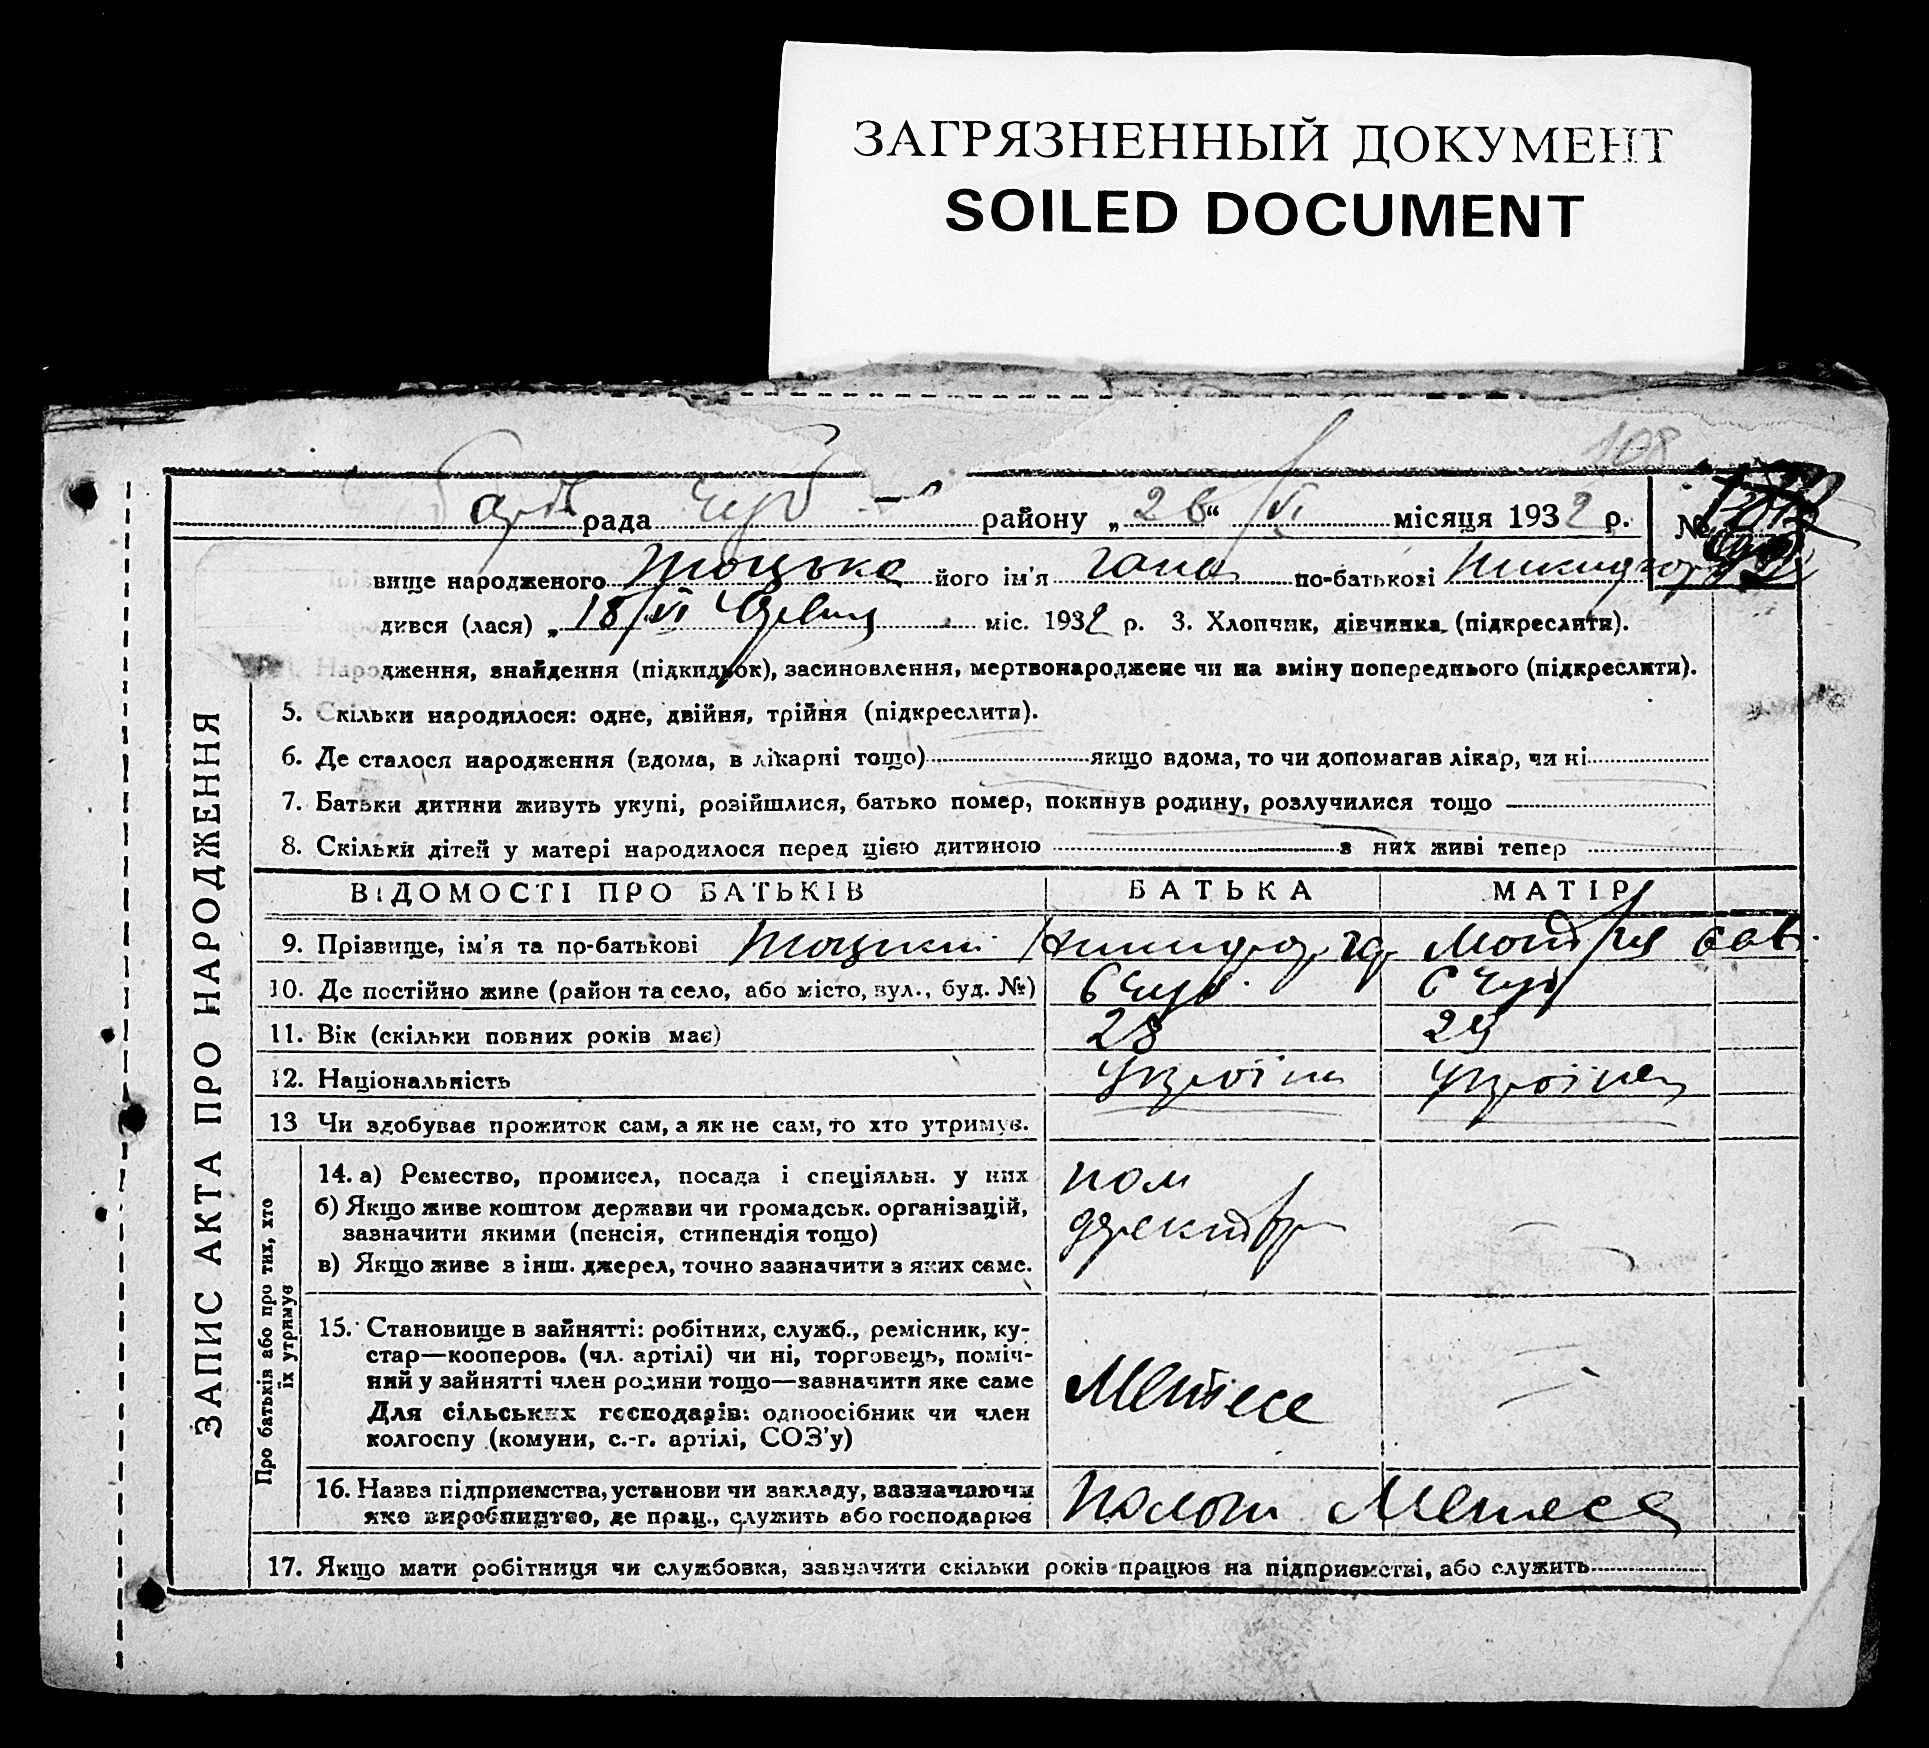 ЗАГРЯЗНЕННЫЙ ДОКУМЕНТ
SOILED DOCUMENT
108
рада району „26“ VI місяця 1932 р. №
вище народженого Троцька його ім'я Гана по-батькові
дився (лася) „18/VI міс. 1932 р. 3. Хлопчик, дівчинка (підкреслити).
Народження, знайдення (підкидьок), засиновлення, мертвонароджене чи на зміну попереднього (підкреслити).
5. Скільки народилося: одне, двійня, трійня (підкреслити).
6. Де сталося народження (вдома, в лікарні тощо) якщо вдома, то чи допомагав лікар, чи ні
7. Батьки дитини живуть укупі, розійшлися, батько помер, покинув родину, розлучилися тощо
8. Скільки дітей у матері народилося перед цією дитиною з них живі тепер
ЗАПИС АКТА ПРО НАРОДЖЕННЯ
ВІДОМОСТІ ПРО БАТЬКІВ БАТЬКА МАТІР
9. Прізвище, ім'я та по-батькові
10. Де постійно живе (район та село, або місто, вул., буд. №)
11. Вік (скільки повних років має) 28 29
12. Національність
13 Чи здобував прожиток сам, а як не сам, то хто утримує.
Про батьків або про тих, хто
їх утримує
14. а) Ремество, промисел, посада і спеціяльн. у них пом
б) Якщо живе коштом держави чи громадськ. організацій,
зазначити якими (пенсія, стипендія тощо) директор
в) Якщо живе з інш. джерел, точно зазначити з яких саме.
15. Становище в зайнятті: робітник, служб., ремісник, ку-
стар—кооперов. (чл. артілі) чи ні, торговець, поміч-
ний у зайнятті член родини тощо—зазначити яке саме
Для сільських господарів: одноосібник чи член
колгоспу (комуни, с.-г. артілі, СОЗ'у)
16. Назва підприємства, установи чи закладу, зазначаючи
яке виробництво, де прац., служить або господарює
17. Якщо мати робітниця чи службовка, зазначити скільки років працює на підприємстві, або служить